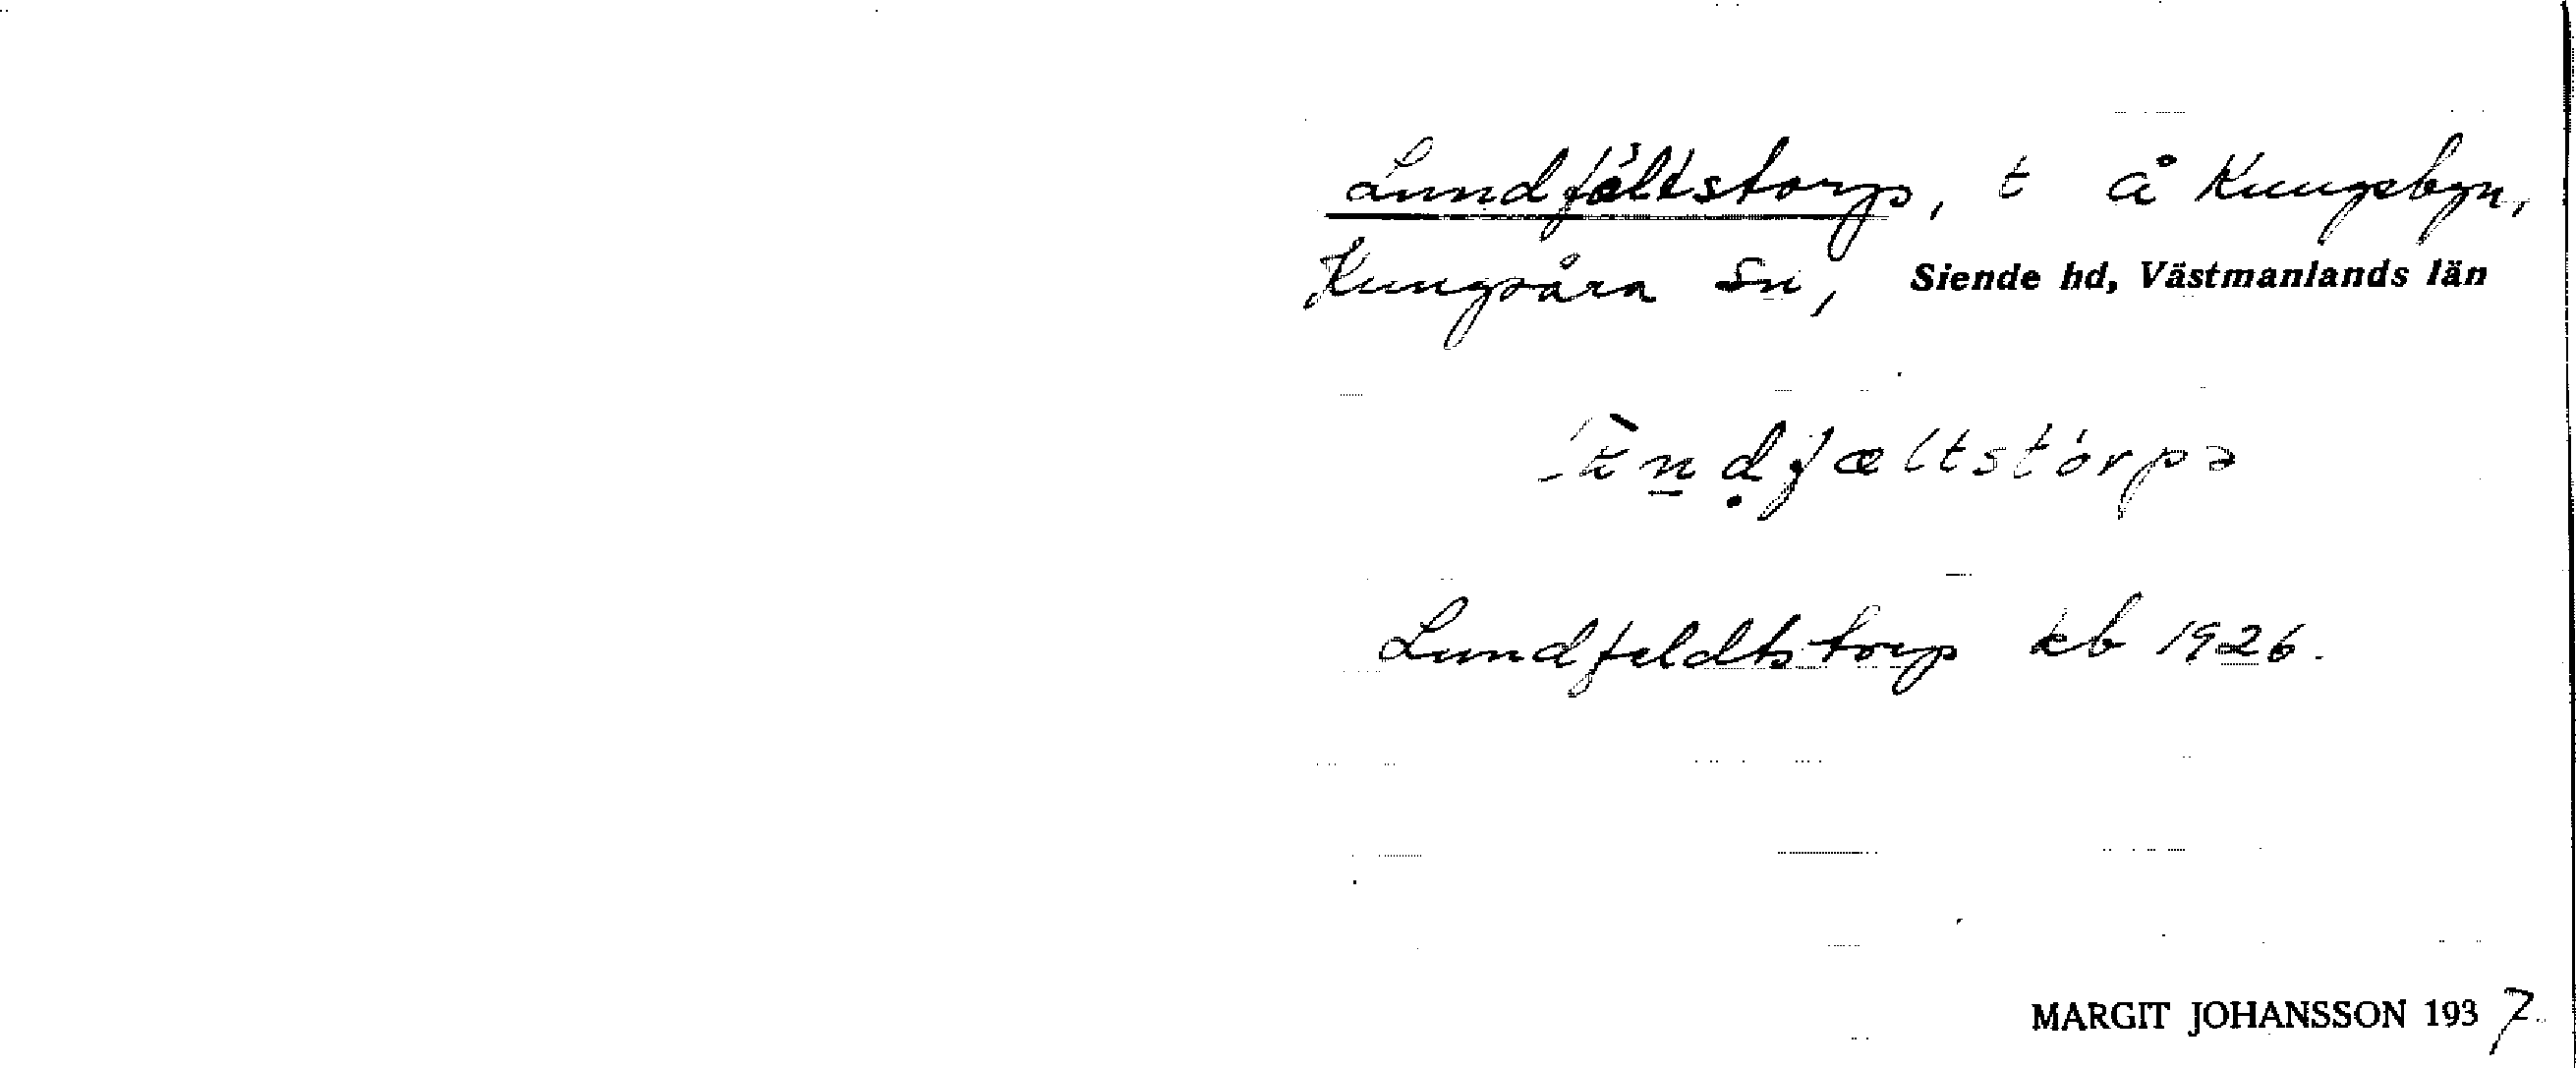 Lundfältstorp, t å Kungsbyn,
Kungsåra sn, Siende hd, Västmanlands län
Lundfeldtstorp kb 1926.
MARGIT JOHANSSON 1937